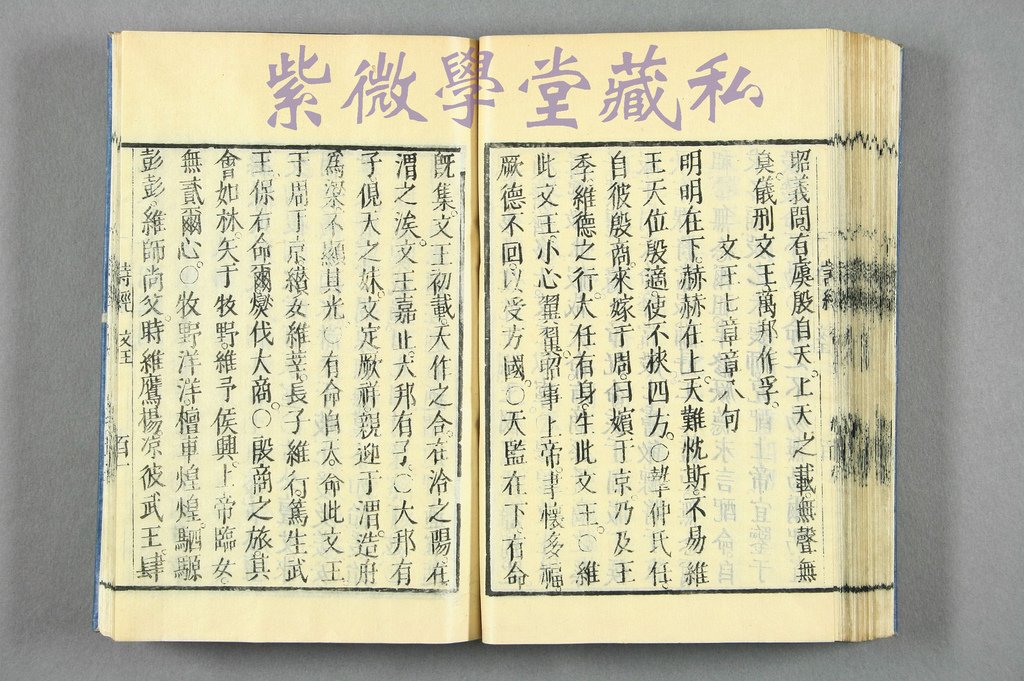 紫微學堂藏私
昭義問有虞殷自天。上天之載無聲無
臭。儀刑文王萬邦作孚。
文王七章章八句
明明在下。赫赫在上。天難忱斯。不易維
王。天位殷適使不挾四方。○摯仲氏任。
自彼殷商。來嫁于周。曰嬪于京。乃及王
季。維德之行。大任有身。生此文王。○維
此文王。小心翼翼。昭事上帝。聿懷多福。
厥德不回。以受方國。○天監在下。有命
既集。文王初載。天作之合。在洽之陽。在
渭之涘。文王嘉止。大邦有子。○大邦有
子。俔天之妹。文定厥祥。親迎于渭。造舟
為梁。不顯其光。○有命自天。命此文王
于周于京。纘女維莘。長子維行。篤生武
王。保右命爾。燮伐大商。○殷商之旅。其
會如林。矢于牧野。維予侯興。上帝臨女。
無貳爾心。○牧野洋洋。檀車煌煌。駟騵
彭彭。維師尚父。時維鷹揚。凉彼武王。肆
詩經 文王 百一